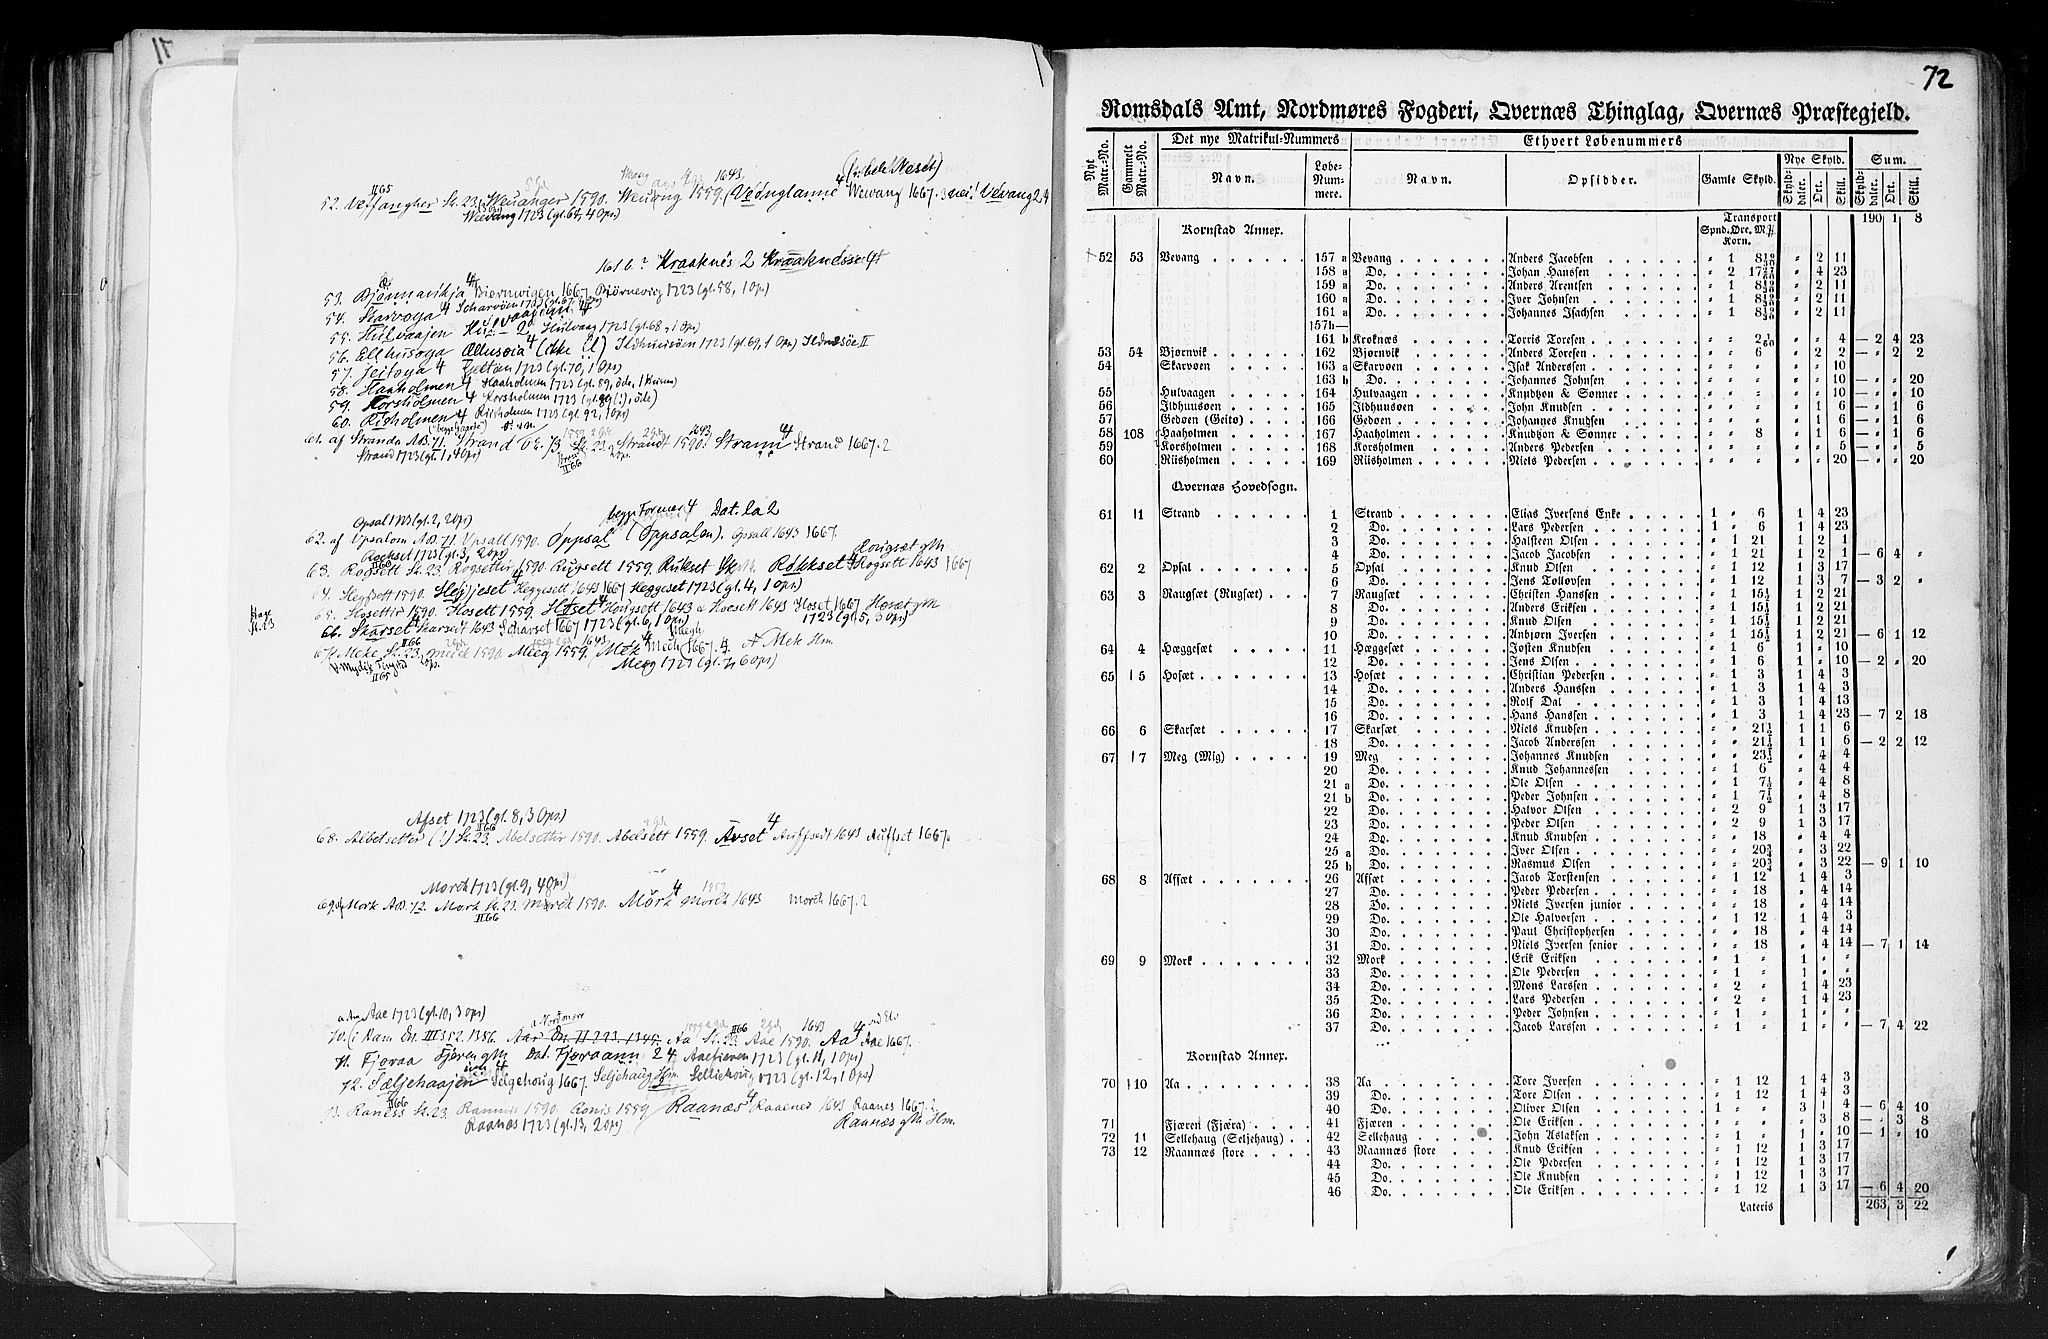 (i: hele Neset)
52. Vettangher Sk. 23. Weuanger 1590. Weuang 1559. (Veónglanne 4 Wevang 1667. 3 nei! Vevang 2, 4
Wevang 1723 (gl. 64, 4 Ops)
161 b? Kraaknēs 2 Kraaknēsse 4
53. Bjönnavikja 4 Biørnwigen 1667. Biørnevig 1723 (gl. 58, 1 Ops)
54. Skarvøya 4 Scharvöen 1723 (gl. 67.
55. Hulvaajen Hulvaagen 2 Hulvang 1723 (gl. 68, 1 Ops)
56. Ellhusøya Ællusøia 4 (ikke Il) Ildhuusöen 1723 (gl. 69, 1 Ops) Ildnesöe II
57. Jeitøya 4 1723 (gl. 70, 1 Ops)
58. Haaholmen 4 Haaholmen 1723 (gl. 89, öde, 1 Kvern)
59. Korsholmen 4 Korsholmen 1723 (gl. 89 (!), öde)
60. Risholmen 4 Riisholmen 1723 (gl. 92, 1 Ops)
61. af Stranda AB. 71. Strand OE. 73. Sk. 23. Strandt 1590. Strann 4 Strand 1667. 2
Strand 1723 (gl. 1, 4 Ops)
Opsal 1723 (gl. 2, 2 Ops) begge Former 4 Dat. la 2
62. af Upsalom AB. 71. Upsall 1590. Öppsal (Öppsalen). Opsall 1643 1667.
Rochset 1723 (gl. 3, 2 Ops)
63. Rogsett Sk. 23. Rogsettir 1590. Rugsett 1559. Rokkset 4 Rogsett 1643 1667
64. Hegsett 1590. Hegjeset 4 Heggesett 1643 1667 Heggeset 1723 (gl. 4, 1 Ops)
65. Hosettir 1590. Hosett 1559. Höset 4 Hougsett 1643 Hoset 1667 Hosæt
1723 (gl. 5, 3 Ops)
66. Skarset 4 Skarsett 1643 Scharset 1667 1723 (gl. 6, 1 Ops)
67. Meke Sk. 23. Meeck 1590. Meeg 1559. Mek 4 Mech 1667. 4. Meh Hm
Megg 1723 (gl. 7, 6 Ops)
Afset 1723 (gl. 8, 3 Ops)
68. Albetsetter (!) Sk. 23. Abelsettir 1590. Abelsett 1559. Avset 4 Auffsedt 1643 Auffset 1667.
Morch 1723 (gl. 9, 4 Ops)
69. af Mork AB. 72. Mork Sk. 23. Morck 1590. Mörk 4 Morch 1643 Morch 1667. 2
Aae 1723 (gl. 10, 3 Ops)
70. (i Ram Dn. III 352. 1386. Aar Dn. II 223. 1345. Aa Sk. 23 Aae 1590. Aa 4 Aae 1667.
71. Fjøraa Fjøren Dat. Fjøraann 2 4 Aaefieren 1723 (gl. 11, 1 Ops)
72. Sæljehaajen Selgehoug 1667. Seljehaug Hm. Selliehoug 1723 (gl. 12, 1 Ops)
73. Raness Sk. 23. Rannis 1590. Ronis 1559 Raanæs 4 Raaenes 1643 Raanes 1667. 2
Raanæs 1723 (gl. 13, 2 Ops) Raanæs Hm.
72
Romsdals Amt, Nordmøres Fogderi, Qvernæs Thinglag, Qvernæs Præstegjeld.
Nyt Matr.-No. Gammelt Matr.-No. Det nye Matrikul-Nummers Ethvert Løbenummers
Nye Skyld. Sum.
Navn. Løbe-Nummere. Navn. Opsidder. Gamle Skyld. Skylddaler. Ort. Skill. Skylddaler. Ort. Skill.
Transport 190 1 8
Kornstad Annex. Spnd. Øre. M.
Korn.
52 53 Bevang 157 a Bevang Anders Jacobsen " 1 8 " 2 11
158 a Do. Johan Hanssen " 2 17 " 4 23
159 a Do. Anders Arentsen " 1 8 " 2 11
160 a Do. Iver Johnsen " 1 8 " 2 11
161 a Do. Johannes Isachsen " 1 8 " 2 11
157b—
161 b Kroknæs Torris Toresen " " 2 1/60 " " 4 — 2 4 23
53 54 Bjørnvik 162 Bjørnvik Anders Toresen " " 6 " 2 2 — " 2 2
54 Skarvøen 163 a Skarvøen Isak Anderssen " " " " " 10
163 b Do. Johannes Johnsen " " " " " 10 — " " 20
55 Hulvaagen 164 Hulvaagen Knudtzon & Sønner " " " " " 10 — " " 10
56 Ildhuusøen 165 Ildhuusøen John Knudsen " " " " 1 6 — " 1 6
57 Gedøen (Geitø) 166 Gedøen Johannes Knudsen " " " " " 6 — " " 6
58 108 Haaholmen 167 Haaholmen Knudtzon & Sønner " " 8 " 1 6 — " 1 6
59 Korsholmen 168 Korsholmen Anders Pedersen " " " " " 5 — " " 5
60 Riisholmen 169 Riisholmen Niels Pedersen " " " " " 20 — " " 20
Qvernæs Hovedsogn.
61 1 Strand 1 Strand Elias Iversens Enke 1 " 6 1 4 23
2 Do. Lars Pedersen 1 " 6 1 4 23
3 Do. Halsteen Olsen " 1 21 1 2 1
4 Do. Jacob Jacobsen " 1 21 1 2 1 — 6 4 "
62 2 Opsal 5 Opsal Knud Olsen " 1 12 1 3 17
6 Do. Jens Tolløvsen " 1 12 1 3 7 — 3 2 "
63 3 Raugsæt (Rugsæt) 7 Raugsæt Christen Hanssen " 1 15½ 1 2 21
8 Do. Anders Eriksen " 1 15½ 1 2 21
9 Do. Knud Olsen " 1 15½ 1 2 21
10 Do. Anbjørn Iversen " 1 15½ 1 2 21 — 6 1 12
64 4 Hæggesæt 11 Hæggesæt Josten Knudsen " 1 6 1 " 10
12 Do. Jens Olsen " 1 6 1 " 10 — 2 " 20
65 5 Hosæt 13 Hosæt Christian Pedersen " 1 3 1 4 3
14 Do. Anders Hanssen " 1 3 1 4 3
15 Do. Rolf Dal " 1 3 1 4 13
16 Do. Hans Hanssen " 1 3 1 4 23 — 7 2 18
66 6 Skarsæt 17 Skarsæt Niels Knudsen " " 21½ 1 1 6
18 Do. Jacob Anderssen " " 21½ 1 1 6 — 2 2 12
67 7 Meg (Mig) 19 Meg Johannes Knudsen " " 23½ " 4 4
20 Do. Knud Johannessen " 1 6 " 4 4
21 a Do. Ole Olsen " 1 7½ " 4 8
21 b Do. Peder Johnsen " 1 7½ " 4 8
22 Do. Halvor Olsen " 2 9 1 3 17
23 Do. Peder Olsen " 2 9 1 3 17
24 Do. Knud Knudsen " " 18 " 4 4
25 a Do. Iver Olsen " " 20¾ " 3 22
25 b Do. Rasmus Olsen " " 20¾ " 3 22 — 9 1 10
68 8 Afsæt 26 Afsæt Jacob Torstensen " 1 12 1 4 3
27 Do. Peder Pedersen " " 18 " 4 14
28 Do. Niels Iversen junior " " 18 " 4 14
29 Do. Ole Halvorsen " 1 12 1 4 3
30 Do. Paul Christophersen " " 18 " 4 14
31 Do. Niels Iversen senior " " 18 " 4 14 — 7 1 14
69 9 Mork 32 Mork Erik Eriksen " 1 " 1 " "
33 Do. Ole Pedersen " 1 " 1 " "
34 Do. Mons Larssen " 2 " 1 4 23
35 Do. Lars Pedersen " 2 " 1 4 23
36 Do. Peder Johnsen " 1 " 1 " "
37 Do. Jacob Larssen " 1 " 1 " " — 7 4 22
Kornstad Annex.
70 10 Aa 38 Aa Tore Iversen " 1 12 1 4 3
39 Do. Tore Olsen " 1 12 1 4 3
40 Do. Oliver Olsen 1 " " 3 1 4 — 6 4 10
71 Fjæren (Fjæra) 41 Fjæren Ole Eriksen " " " " 3 8 — " 3 8
72 11 Sellehaug (Seljehaug) 42 Sellehaug John Aslaksen " 1 " 1 " 10 — 1 " 10
73 12 Raannæs store 43 Raannæs store Knud Eriksen " 1 12 1 3 17
44 Do. Ole Pedersen " 1 12 1 3 17
45 Do. Ole Knudsen " 1 12 1 3 17
46 Do. Ole Eriksen " 1 12 1 3 17 — 6 4 20
Lateris 263 3 22